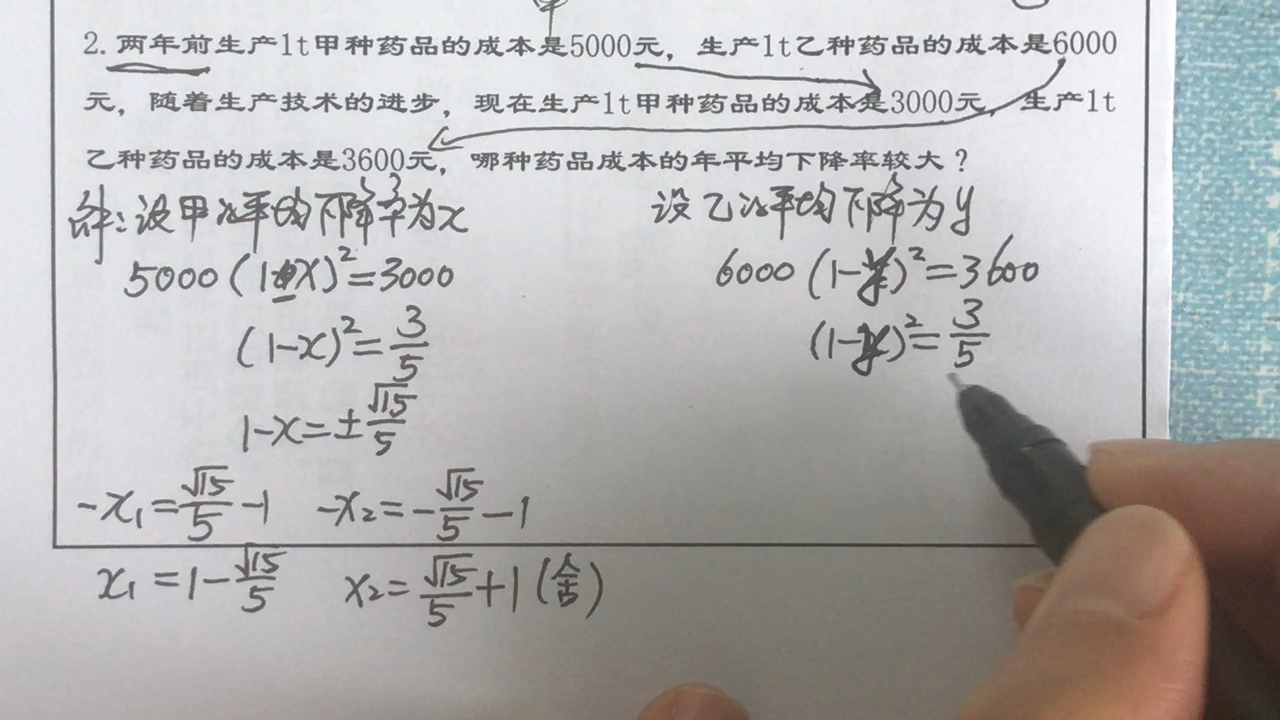 2.两年前生产1t甲种药品的成本是5000元，生产1t乙种药品的成本是6000
元，随着生产技术的进步，现在生产1t甲种药品的成本是3000元，生产1t
乙种药品的成本是3600元，哪种药品成本的年平均下降率较大？
解：设甲的平均下降率为x
5000(1-x)²=3000
(1-x)²=3/5
1-x=±√15/5
-x₁=√15/5-1 -x₂=-√15/5-1
x₁=1-√15/5 x₂=√15/5+1(舍)
设乙的平均下降为y
6000(1-y)²=3600
(1-y)²=3/5